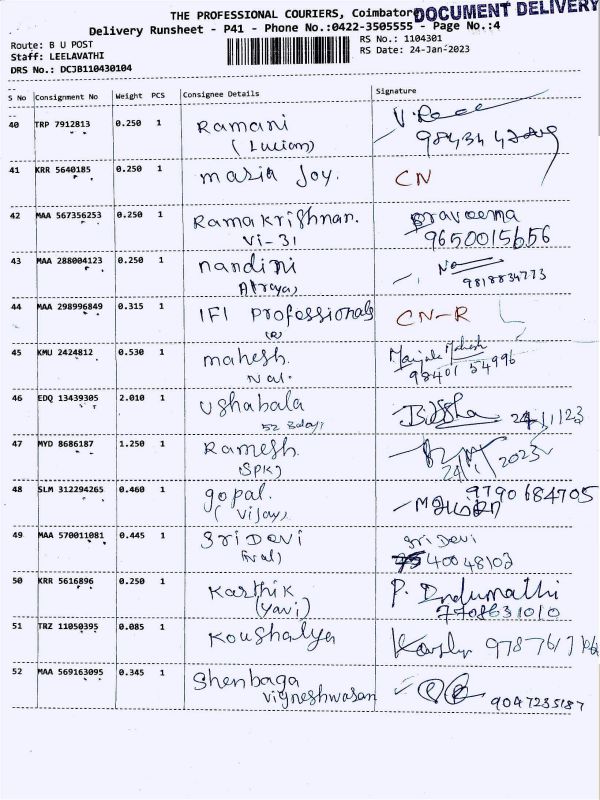 THE PROFESSIONAL COURIERS, Coimbator DOCUMENT DELIVERY
Delivery Runsheet - P41 - Phone No.:0422-3505555 - Page No.:4
Route: B U POST RS No.: 1104301
Staff: LEELAVATHI RS Date: 24-Jan-2023
DRS No.: DCJB110430104
S No Consignment No Weight PCS Consignee Details Signature
40 TRP 7912813 0.250 1 Ramani
(Lucian)
41 KRR 5640185 0.250 1 maria Joy. CN
42 MAA 567356253 0.250 1 Ramakrishnan. Praveena
Vi-31 9650015656
43 MAA 288004123 0.250 1 nandini
Atraya, 9818834773
44 MAA 298996849 0.315 1 IFI Professionals CN-R
(R)
45 KMU 2424812 0.530 1 mahesh. Manjula Mahesh
Nal. 98401 54996
46 EDQ 13439305 2.010 1 Ushabala 24/1/23
52
47 MYD 8686187 1.250 1 Ramesh
(SPK) 24/1/2023
48 SLM 312294265 0.460 1 gopal. 9790684705
(Vijay)
49 MAA 570011081 0.445 1 SriDevi Sri Devi
40048103
50 KRR 5616896 0.250 1 Karthik P. Indumathi
(Yavi) 7708631010
51 TRZ 11050395 0.085 1 Koushalya
52 MAA 569163095 0.345 1 Shenbaga
Vigneshwasan 9047235187